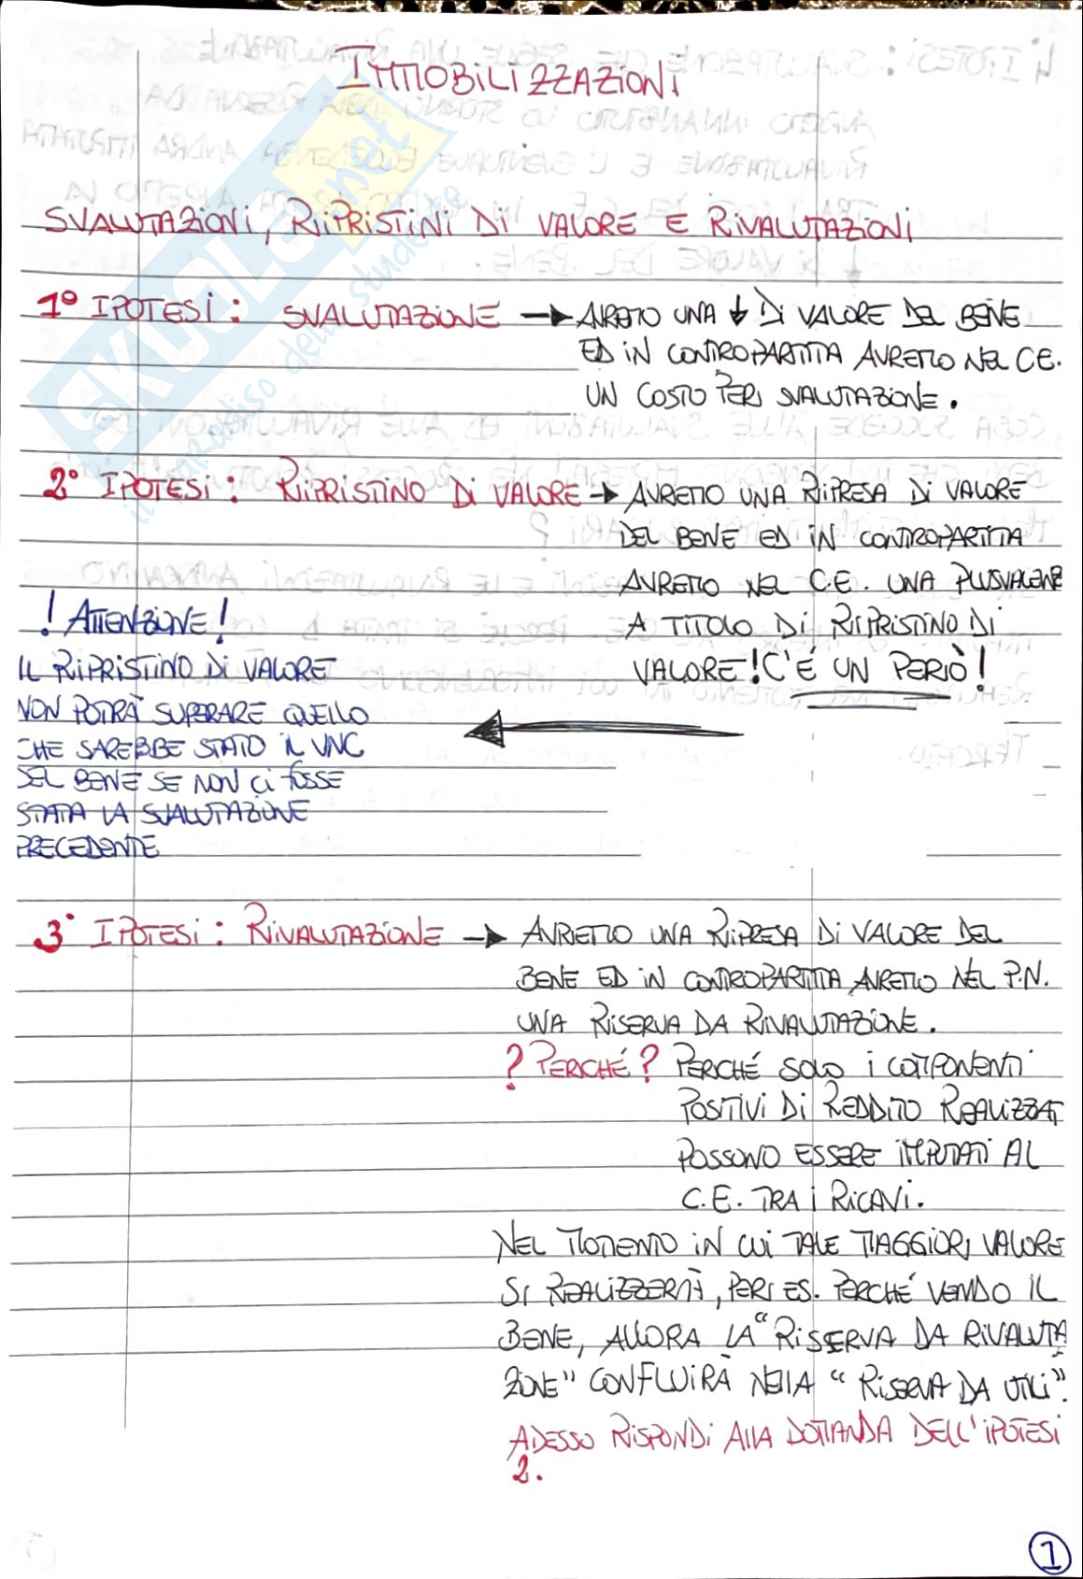 IMMOBILIZZAZIONI
SVALUTAZIONI, RIPRISTINI DI VALORE E RIVALUTAZIONI
1° IPOTESI: SVALUTAZIONE → AVREMO UNA ↓ DI VALORE DEL BENE
ED IN CONTROPARTITA AVREMO NEL CE.
UN COSTO PER SVALUTAZIONE.
2° IPOTESI: RIPRISTINO DI VALORE → AVREMO UNA RIPRESA DI VALORE
DEL BENE ED IN CONTROPARTITA
AVREMO NEL C.E. UNA PLUSVALENZ
A TITOLO DI RIPRISTINO DI
VALORE! C'É UN PERÒ!
! ATTENZIONE!
IL RIPRISTINO DI VALORE
NON POTRÀ SUPERARE QUELLO
CHE SAREBBE STATO IL VNC
DEL BENE SE NON CI FOSSE
STATA LA SVALUTAZIONE
PRECEDENTE
3° IPOTESI: RIVALUTAZIONE → AVREMO UNA RIPRESA DI VALORE DEL
BENE ED IN CONTROPARTITA AVREMO NEL P.N.
UNA RISERVA DA RIVALUTAZIONE.
? PERCHÉ? PERCHÉ SOLO I COMPONENTI
POSITIVI DI REDDITO REALIZZATI
POSSONO ESSERE IMPUTATI AL
C.E. TRA I RICAVI.
NEL MOMENTO IN CUI TALE MAGGIOR VALORE
SI REALIZZERÀ, PER ES. PERCHÉ VENDO IL
BENE, ALLORA LA "RISERVA DA RIVALUTA
ZIONE" CONFLUIRÀ NELLA "RISERVA DA UTILI".
ADESSO RISPONDI ALLA DOMANDA DELL'IPOTESI
2.
1
SKUOLA.net